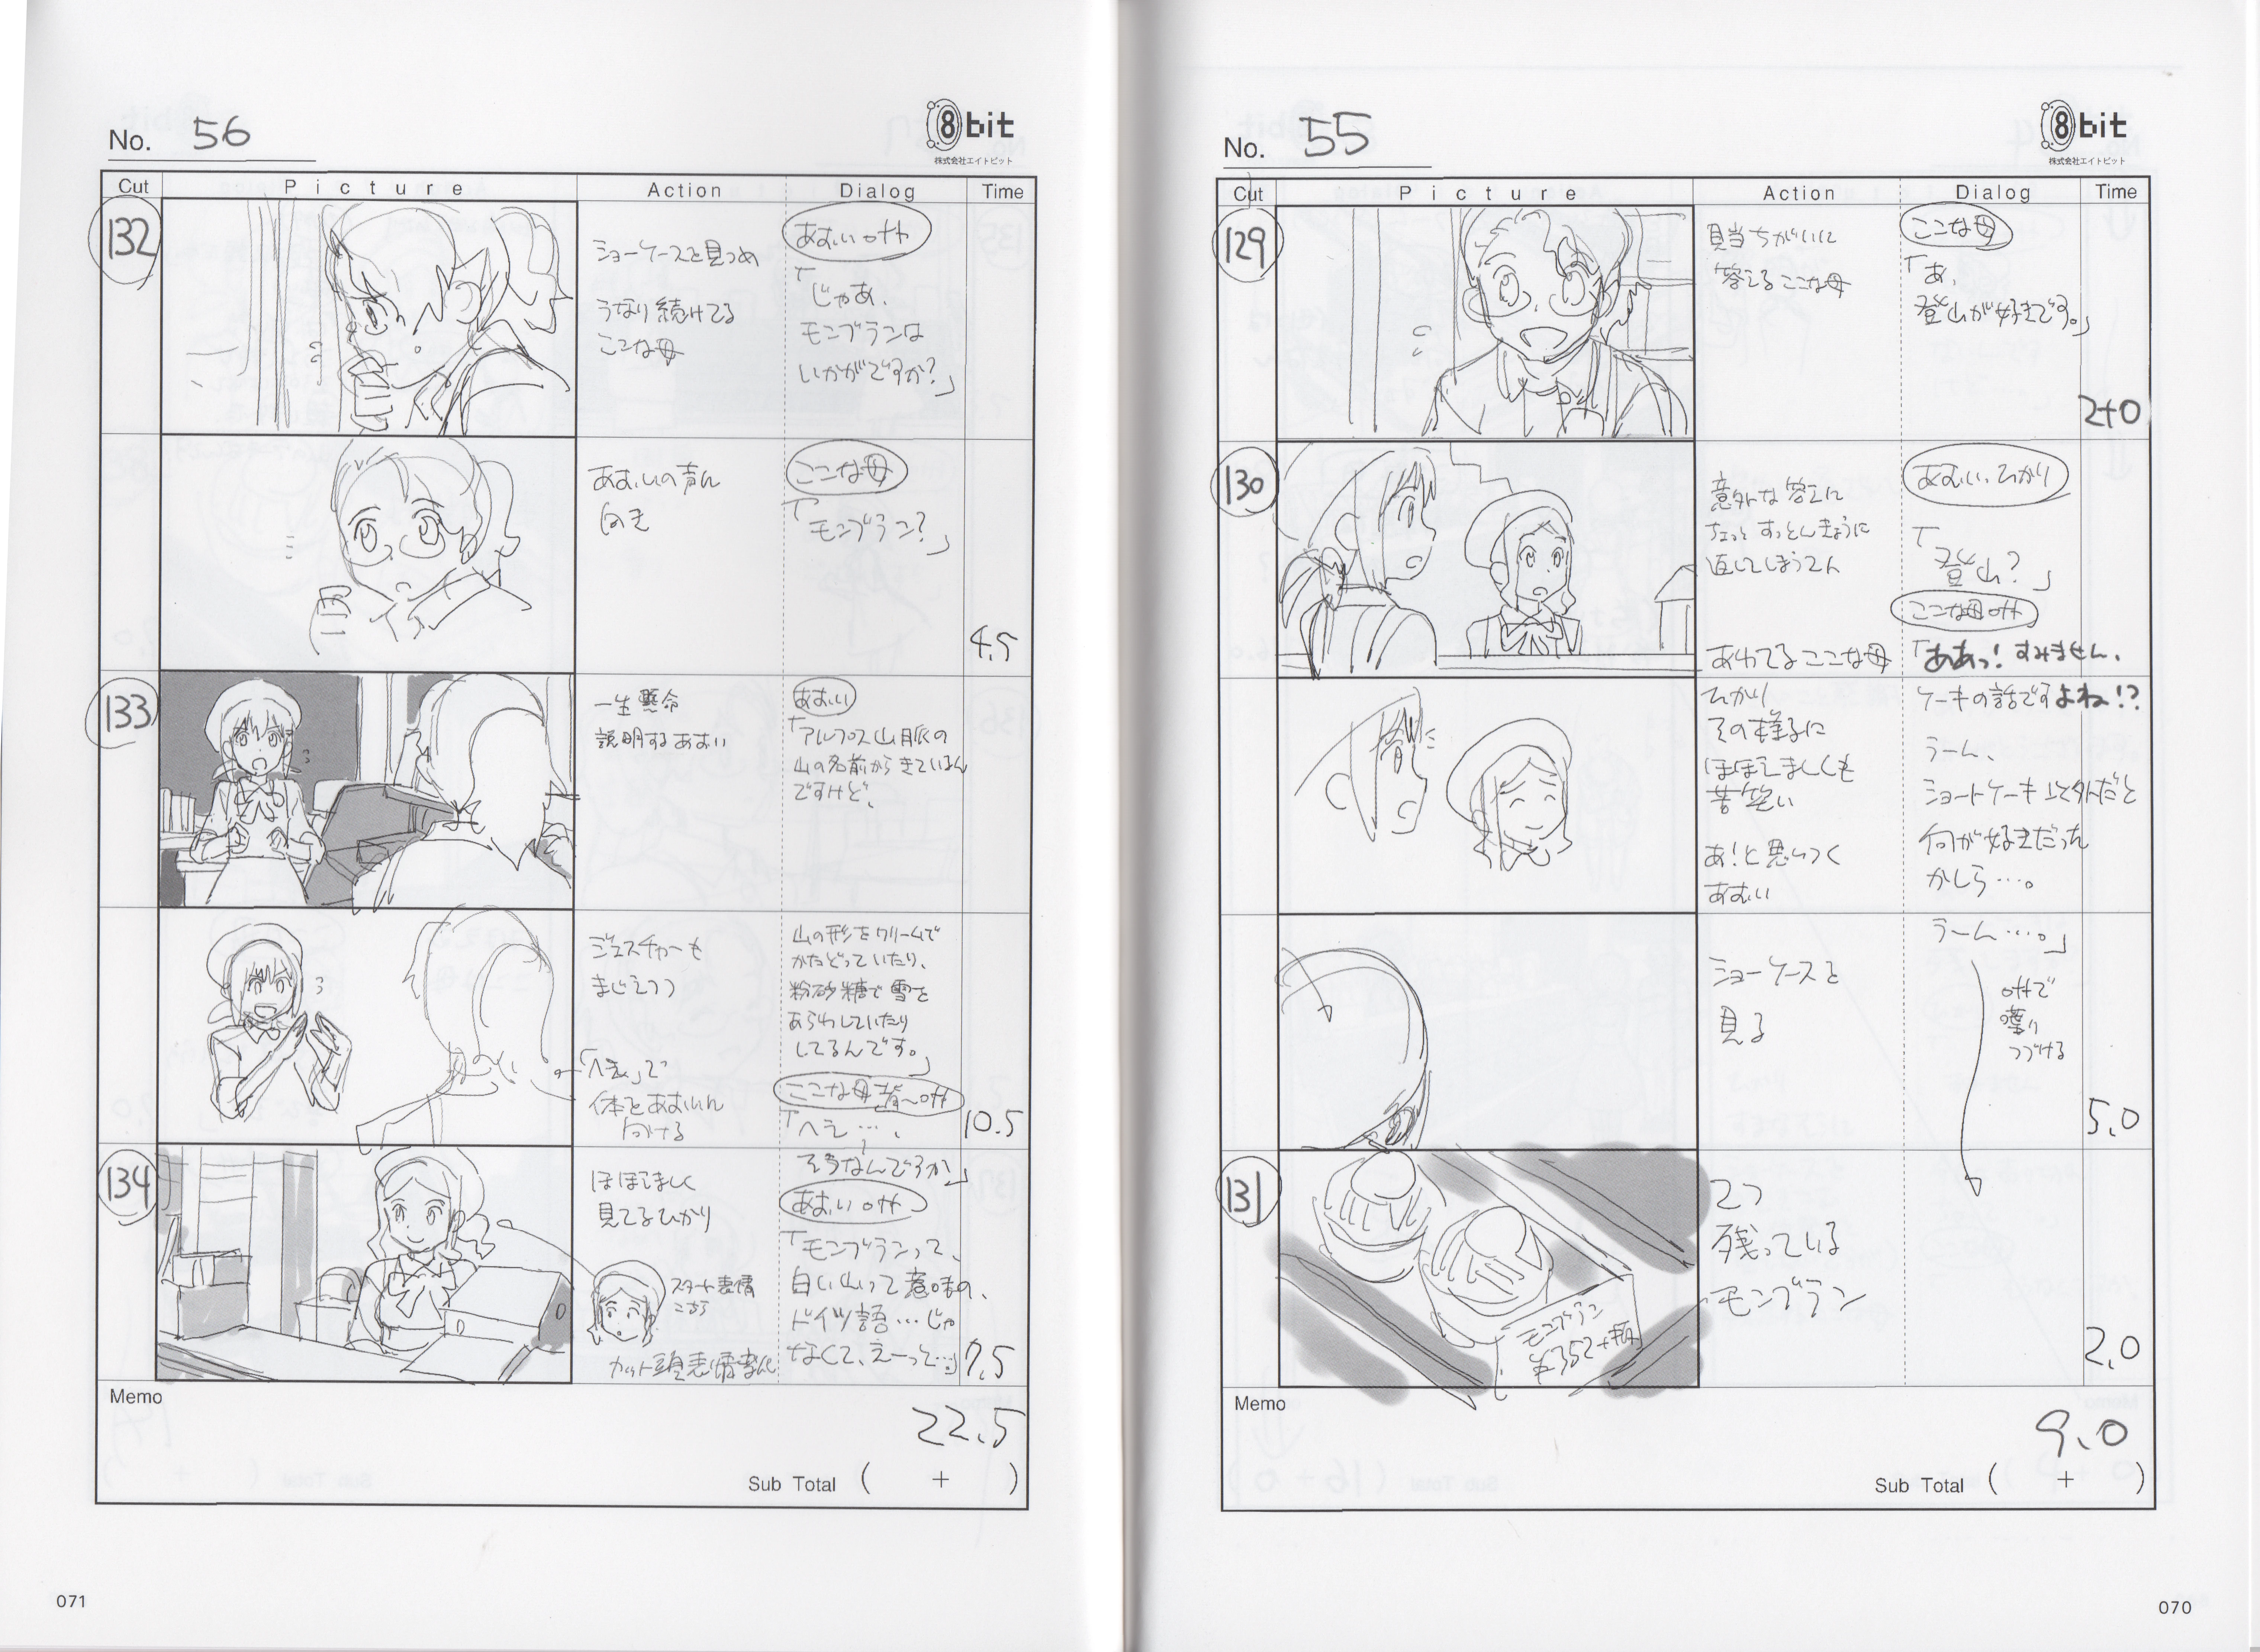 No. 55
8bit
株式会社エイトビット
Cut Picture Action Dialog Time
129
見当ちがいに
答えるここな母
ここな母
「あ、
登山が好きです。」
2+0
130
意外な答えに
ちょっとすっとんきょうに
返してしまう2人
あおい、ひかり
「登山?」
あわてるここな母
ここな母off
「ああっ!すみません、
ひかり
その様子に
ほほえましくも
苦笑い
あ!と思いつく
あおい
ケーキの話ですよね!?
うーん、
ショートケーキ以外だと
何が好きだった
かしら…。
ショーケースを
見る
うーん…。」
offで
喋り
つづける
5.0
131
2つ
残っている
モンブラン
モンブラン
¥352
2.0
Memo
9.0
Sub Total ( + )
070
No. 56
8bit
株式会社エイトビット
Cut Picture Action Dialog Time
132
ショーケースを見つめ
うなり続けてる
ここな母
あおいoff
「じゃあ、
モンブランは
いかがですか?」
あおいの声に
向き
ここな母
「モンブラン?」
4.5
133
一生懸命
説明するあおい
あおい
「アルプス山脈の
山の名前からきているん
ですけど、
ジェスチャーも
まじえつつ
山の形をクリームで
かたどっていたり、
粉砂糖で雪を
あらわしていたり
してるんです。」
「へえ」で
体をあおいに
向ける
ここな母 背〜off
「へえ…、
そうなんですか」
10.5
134
ほほえましく
見てるひかり
スタート表情
こちら
あおいoff
「モンブランって、
白い山って意味の、
ドイツ語…じゃ
なくて、えーっと…」
7.5
Memo
22.5
Sub Total ( + )
071